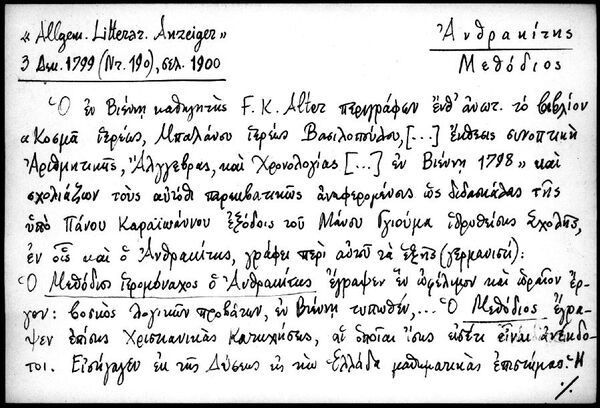 « Allgem. Litterar. Anzeiger»
3 Δεκ. 1799 (Nr. 190), σελ. 1900
Ἀνθρακίτης
Μεθόδιος
Ὁ ἐν Βιέννῃ καθηγητὴς F. K. Alter περιγράφων ἐνθ' ἀνωτ. τὸ βιβλίον
« Κοσμᾶ ἱερέως, Μπαλάνου ἱερέως Βασιλοπούλου, [...] ἔκθεσις συνοπτικὴ
Ἀριθμητικῆς, Ἀλγγέβρας, καὶ Χρονολογίας [...] ἐν Βιέννῃ 1798 » καὶ
σχολιάζων τοὺς αὐτόθι παρεμβατικῶς ἀναφερομένους ὡς διδασκάλους τῆς
ὑπὸ Πάνου Καραϊωάννου ἐξόδοις τοῦ Μάνου Γγιούμα ἱδρυθείσης Σχολῆς,
ἐν οἷς καὶ ὁ Ἀνθρακίτης, γράφει περὶ αὐτοῦ τὰ ἑξῆς (γερμανιστί):
Ὁ Μεθόδιος ἱερομόναχος ὁ Ἀνθρακίτης ἔγραψεν ἓν ὠφέλιμον καὶ ὡραῖον ἔρ-
γον: βοσκὸς λογικῶν προβάτων, ἐν Βιέννῃ τυπωθέν,... Ὁ Μεθόδιος ἔγρα-
ψεν ἐπίσης Χριστιανικὰς Κατηχήσεις, αἱ ὁποῖαι ἴσως εἰσέτι εἶναι ἀνέκδο-
τοι. Εἰσήγαγεν ἐκ τῆς Δύσεως εἰς τὴν Ἑλλάδα μαθηματικὰς ἐπιστήμας. Ἡ
./.